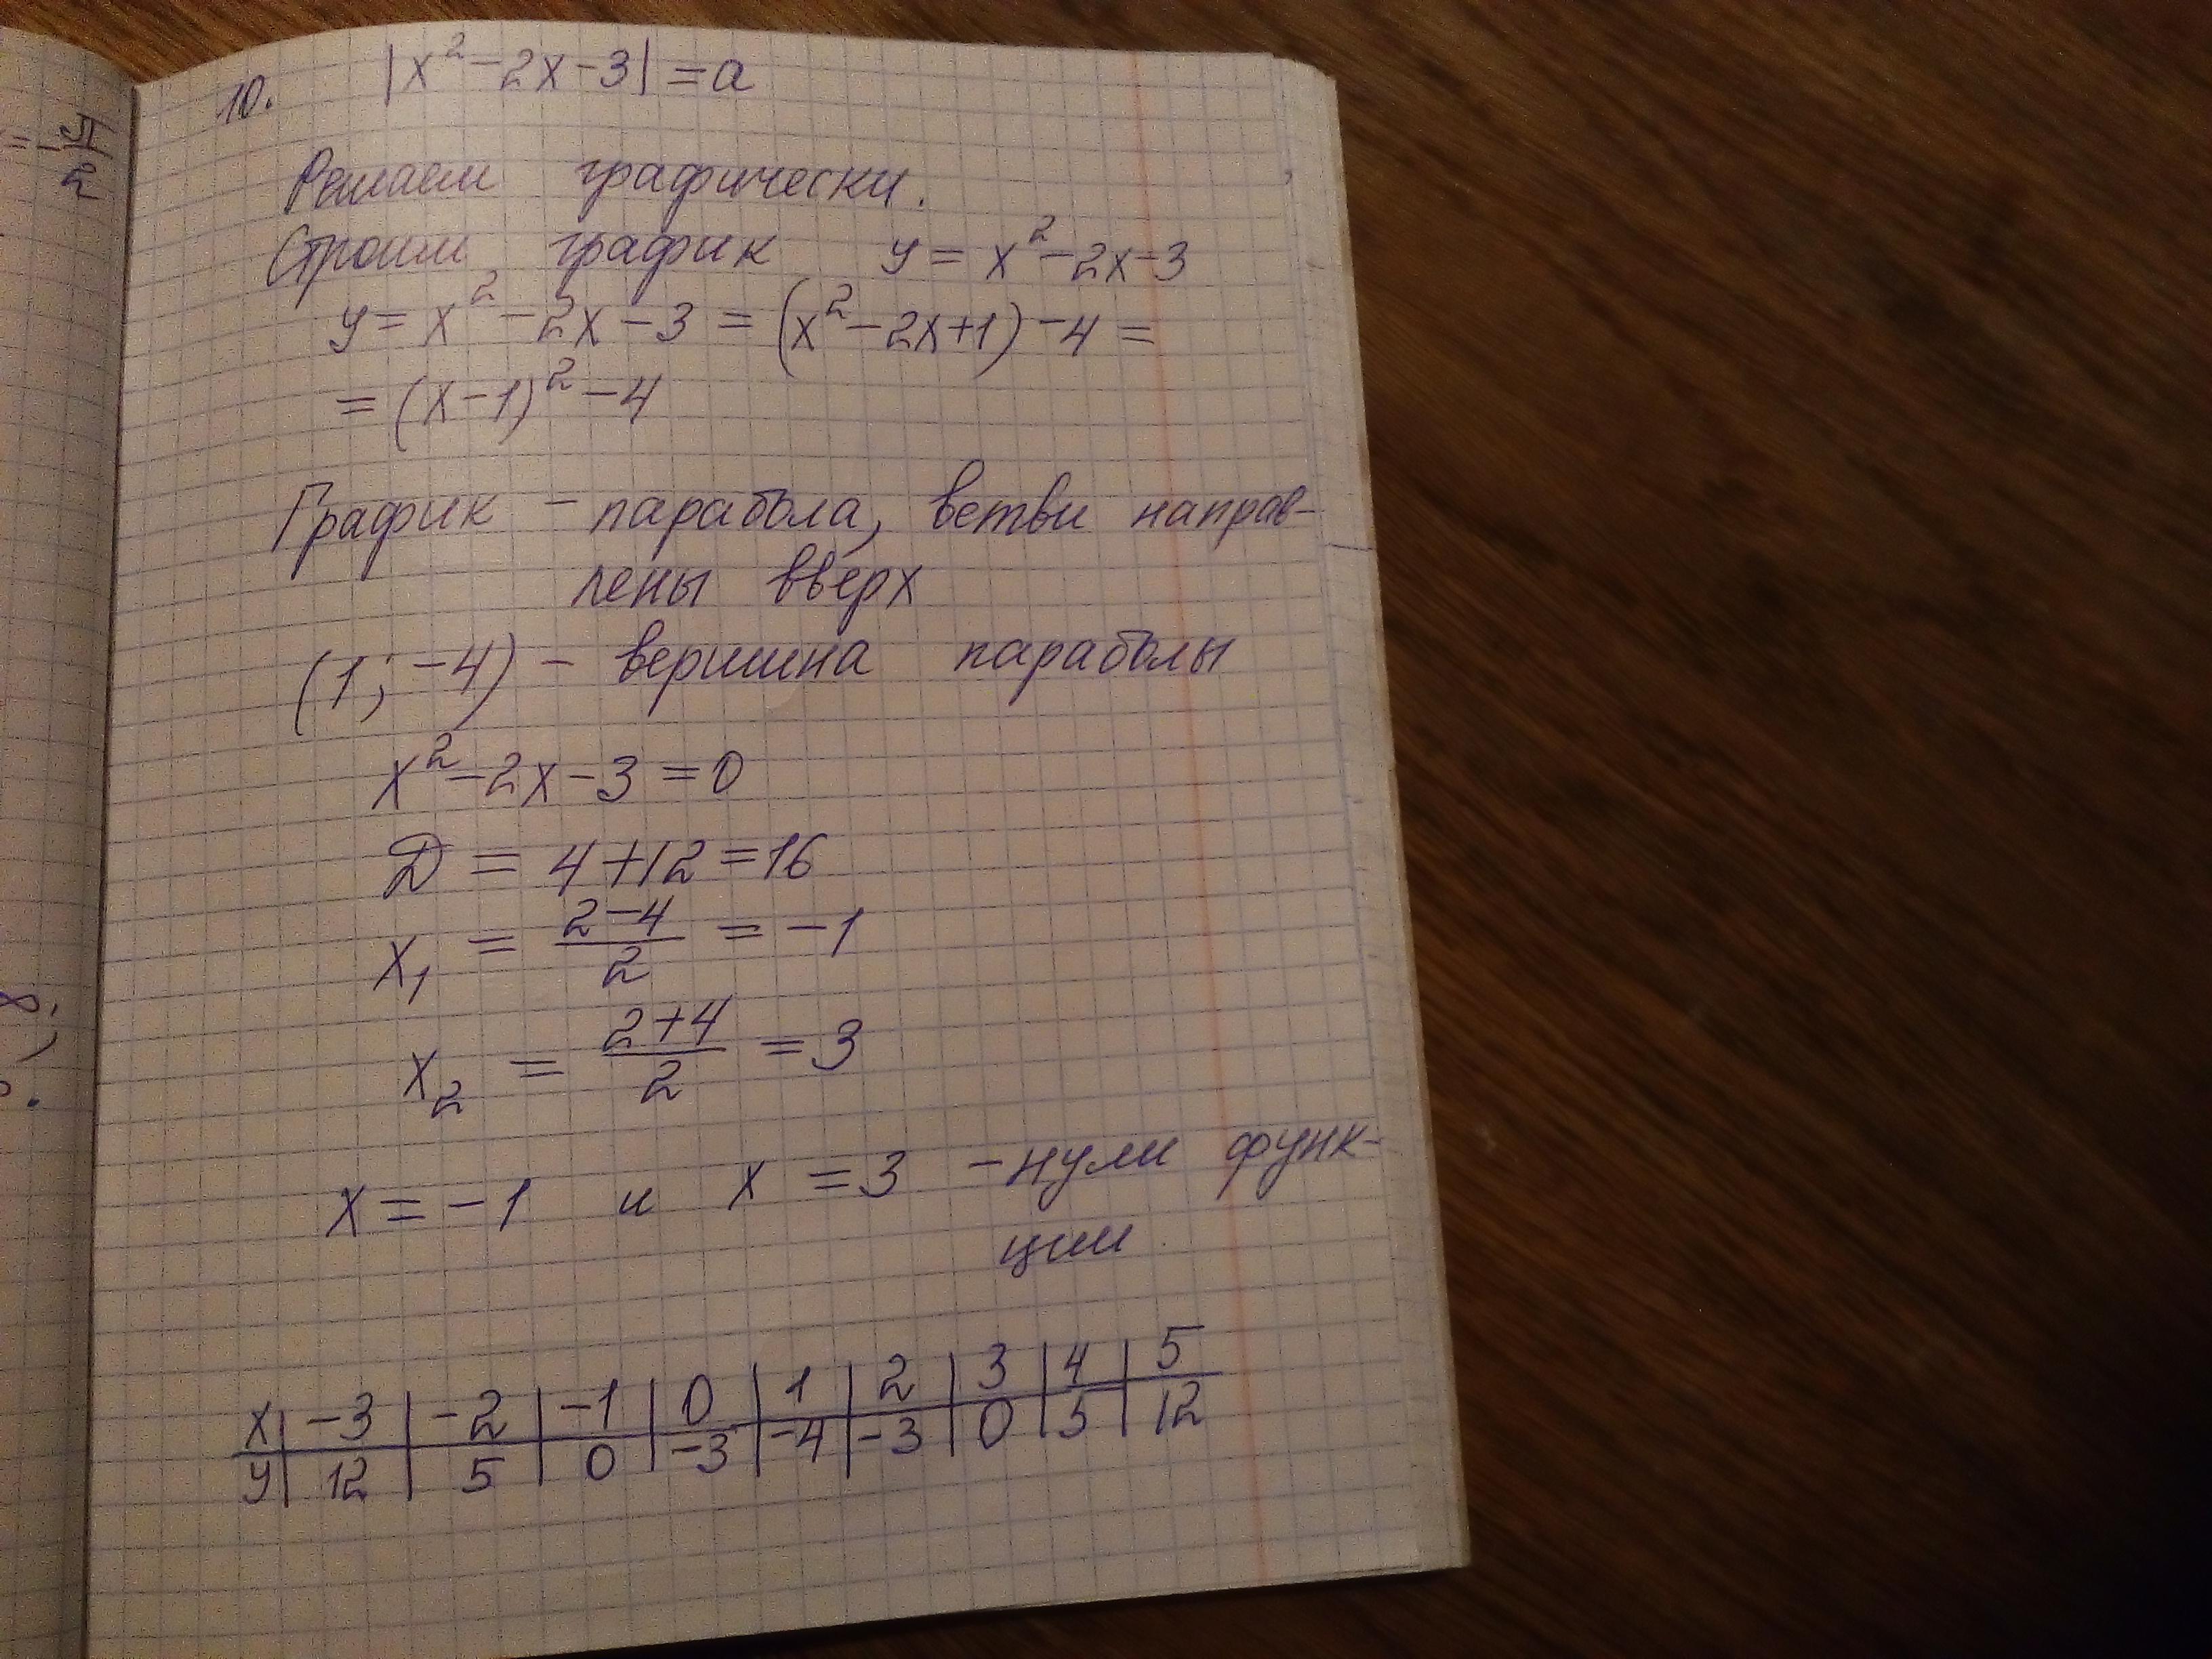 10. |x²-2x-3| = a
Решаем графически.
Строим график y = x²-2x-3
y = x²-2x-3 = (x²-2x+1)-4 =
= (x-1)²-4
График - парабола, ветви направ-
лены вверх
(1; -4) - вершина параболы
x²-2x-3=0
D = 4+12=16
x₁ = (2-4)/2 = -1
x₂ = (2+4)/2 = 3
x = -1 и x = 3 - нули функ-
ции.
x | -3 | -2 | -1 | 0 | 1 | 2 | 3 | 4 | 5
y | 12 | 5 | 0 | -3 | -4 | -3 | 0 | 5 | 12